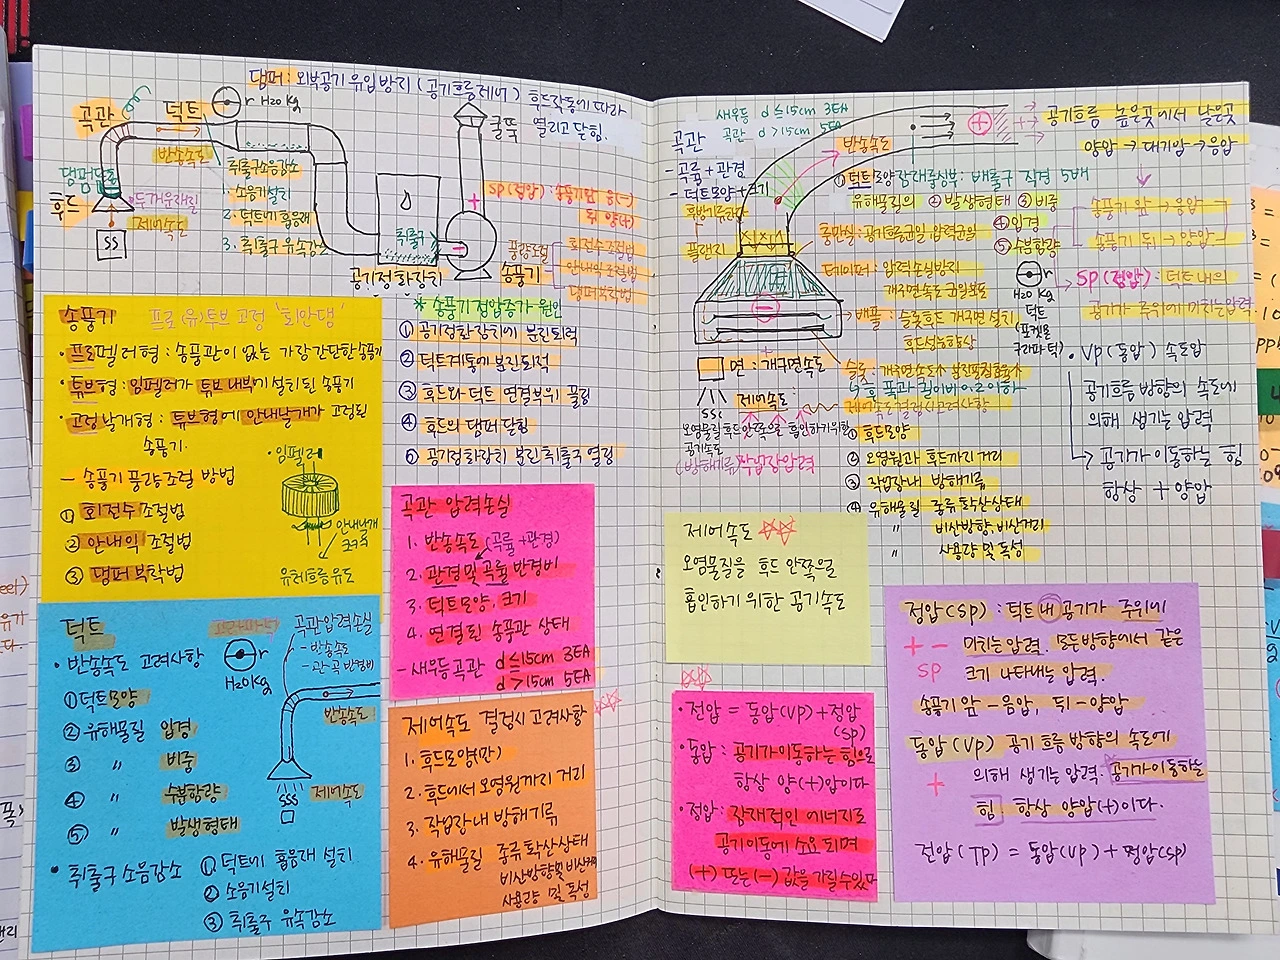 댐퍼: 외부공기 유입방지 (공기흐름제어) 후드작동에 따라
열리고 닫힘.
곡관
덕트
r H2O kg
굴뚝
반송속도
댐퍼
후드
제어속도
SS
취출구소음감소
1. 소음기설치
2. 덕트에 흡음재
3. 취출구 유속감소
취출구
공기정화장치
SP(정압): 송풍기앞 음(-)
뒤 양(+)
풍량조절
송풍기
회전수조절법
안내익조절법
댐퍼부착법
송풍기 프로(유)투브 고정 '회안댐'
· 프로펠러형: 송풍관이 없는 가장 간단한 송풍기
· 튜브형: 임펠러가 튜브 내부에 설치된 송풍기
· 고정날개형: 튜브형에 안내날개가 고정된
송풍기
- 송풍기 풍량조절 방법
① 회전수 조절법
② 안내익 조절법
③ 댐퍼 부착법
· 임펠러
안내날개
유체흐름유도
* 송풍기 정압증가 원인
① 공기정화장치에 분진퇴적
② 덕트계통에 분진퇴적
③ 후드와 덕트 연결부위 풀림
④ 후드의 댐퍼 닫힘
⑤ 공기정화장치 분진취출구 열림
곡관 압력손실
1. 반송속도 (곡률+관경)
2. 관경 및 곡률 반경비
3. 덕트모양, 크기
4. 연결된 송풍관 상태
- 새우등곡관 d ≤ 15cm 3EA
d > 15cm 5EA
덕트
· 반송속도 고려사항
① 덕트모양
② 유해물질 입경
③ 〃 비중
④ 〃 수분함량
⑤ 〃 발생형태
r
H2O kg
곡관압력손실
- 반송속도
반송속도
SSS
제어속도
· 취출구 소음감소
① 덕트에 흡음재 설치
② 소음기설치
③ 취출구 유속감소
제어속도 결정시 고려사항
1. 후드모양(만)
2. 후드에서 오염원까지 거리
3. 작업장내 방해기류
4. 유해물질 종류 확산상태
비산방향 및 비산거리
사용량 및 독성
새우등 d ≤ 15cm 3EA
곡관 d > 15cm 5EA
곡관
- 곡률 + 관경
- 덕트모양 + 크기
플랜지
반송속도
공기흐름 높은곳에서 낮은곳
양압 → 대기압 → 음압
① 덕트모양
장애물중심부: 배출구 직경 5배
유해물질의 ② 발생형태 ③ 비중
④ 입경
⑤ 수분함량
송풍기 앞 → 음압
송풍기 뒤 → 양압
충만실: 공기흐름균일 압력균일
테이퍼: 압력손실방지
개구면속도 균일분포
배플: 슬롯후드 개구면 설치,
후드성능향상
r
H2O kg
덕트
SP(정압): 덕트내의
공기가 주위에 미치는 압력
면: 개구면속도
SSC
제어속도:
오염물질 후드안쪽으로 흡인하기위한
공기속도
(방해기류) 작업장압력
제어속도결정시고려사항
① 후드모양
② 오염원과 후드까지 거리
③ 작업장내 방해기류
④ 유해물질 종류확산상태
〃 비산방향, 비산거리
〃 사용량 및 독성
· VP(동압) 속도압
공기흐름 방향의 속도에
의해 생기는 압력
→ 공기가 이동하는 힘
항상 + 양압
제어속도
오염물질을 후드 안쪽으로
흡인하기 위한 공기속도
· 전압 = 동압(VP) + 정압
(SP)
· 동압: 공기가이동하는 힘으로
항상 양(+)압이다
· 정압: 잠재적인 에너지로
공기이동에 소요되며
(+) 또는 (-) 값을 가질수있다
정압(SP): 덕트 내 공기가 주위에
+ - 미치는 압력. 모두방향에서 같은
SP 크기 나타내는 압력.
송풍기 앞 - 음압, 뒤 - 양압
동압(VP) 공기 흐름 방향의 속도에
+ 의해 생기는 압력. 공기가 이동하는
힘 항상 양압(+)이다.
전압(TP) = 동압(VP) + 정압(SP)